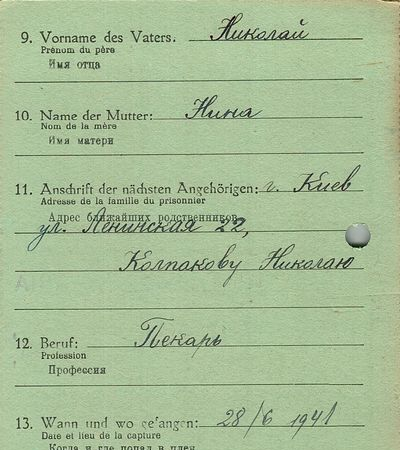 9. Vorname des Vaters: Николай
Prénom du père
Имя отца
10. Name der Mutter: Нина
Nom de la mère
Имя матери
11. Anschrift der nächsten Angehörigen: г. Киев
Adresse de la famille du prisonnier
Адрес ближайших родственников
ул. Ленинская 22,
Колпакову Николаю
12. Beruf: Пекарь
Profession
Профессия
13. Wann und wo gefangen: 28/6 1941
Date et lieu de la capture
Когда и где попал в плен